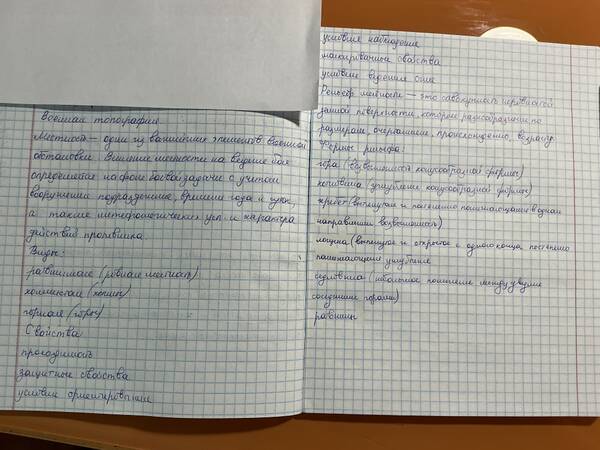 Военная топография
Местность — один из важнейших элементов военной
обстановки. Влияние местности на ведение боя
определяется на фоне боевой задачи с учётом
вооружения подразделения, времени года и суток,
а также метеорологических усл. и характера
действий противника.
Виды:
равнинная (ровная местность)
холмистая (холмы)
горная (горы)
Свойства
проходимость
защитные свойства
условия ориентирования
условия наблюдения
маскировочные свойства
условия ведения огня
Рельеф местности — это совокупность неровностей
земной поверхности, которые разнообразны по
размерам, очертаниям, происхождению, возрасту
Формы рельефа:
гора (возвышенность конусообразной формы)
котловина (углубление конусообразной формы)
хребет (выпуклая и постепенно понижающаяся в одном
направлении возвышенность)
лощина (вытянутое и открытое с одного конца постепенно
понижающееся углубление
седловина (небольшое понижение между двумя
соседними горами)
равнины